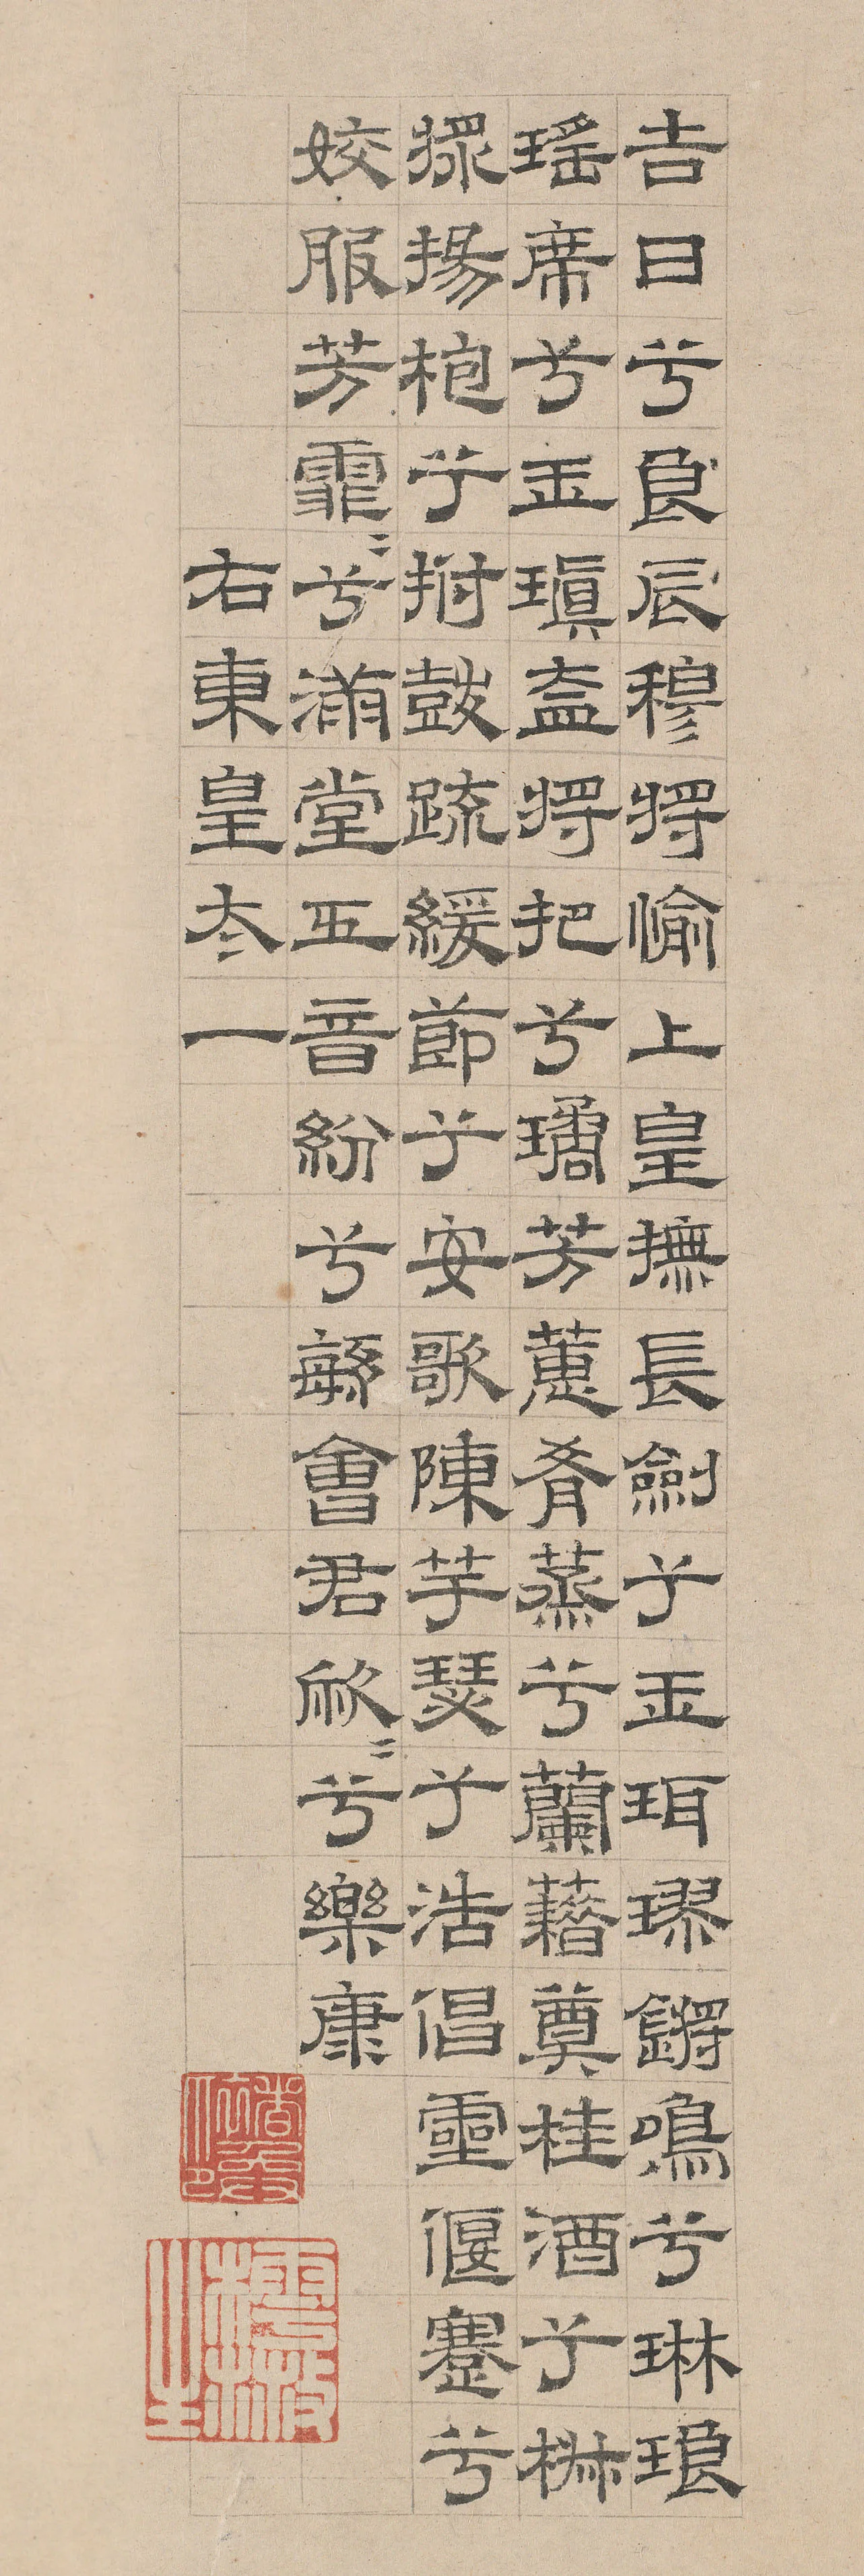 吉日兮良辰穆將愉上皇撫長劍兮玉珥璆鏘鳴兮琳琅
瑤席兮玉瑱盍將把兮瓊芳蕙肴蒸兮蘭藉奠桂酒兮椒
漿揚枹兮拊鼓疏緩節兮安歌陳竽瑟兮浩倡靈偃蹇兮
姣服芳霏〻兮滿堂五音紛兮繁會君欣〻兮樂康
右東皇太一